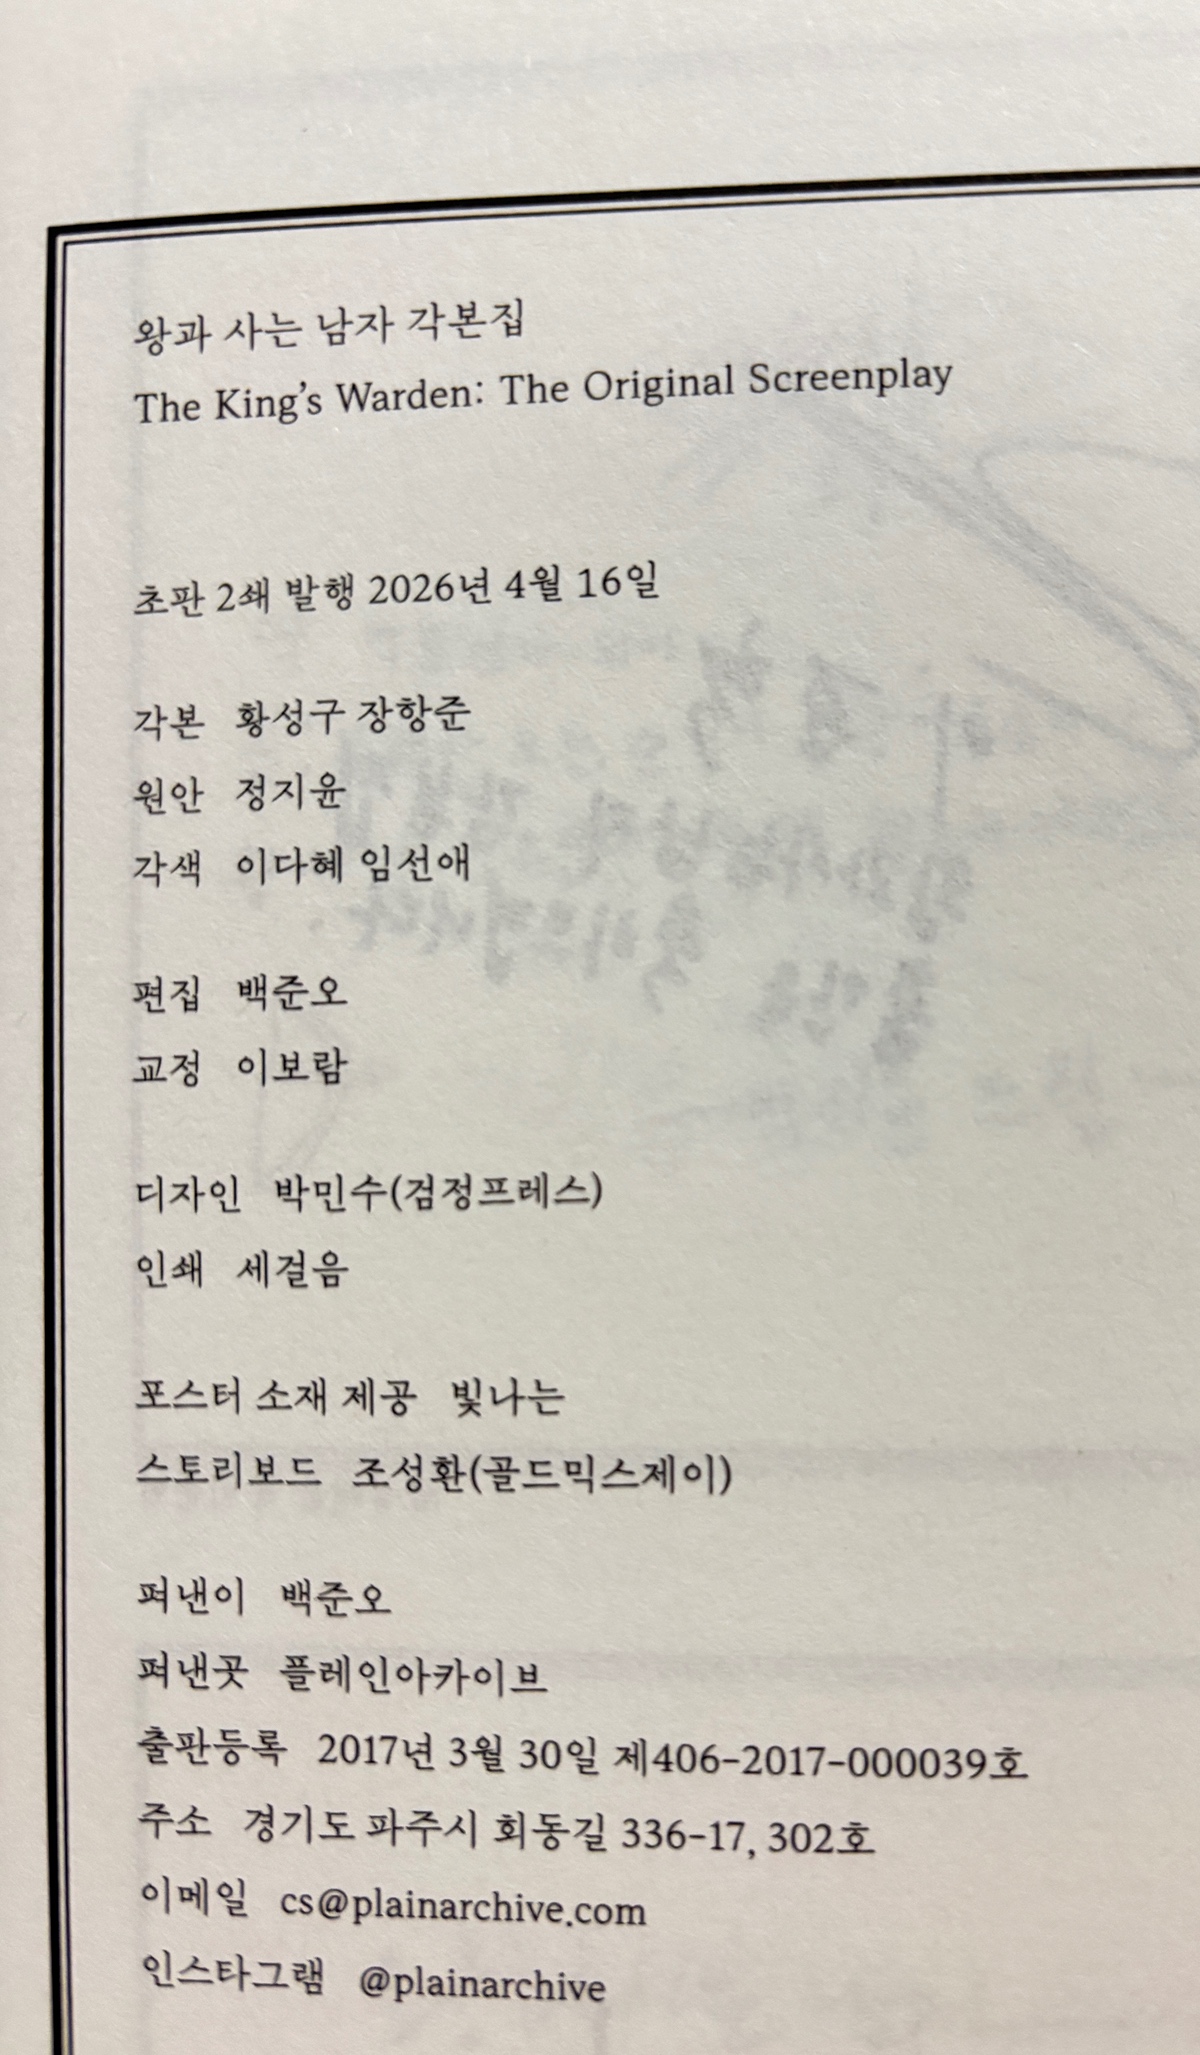 왕과 사는 남자 각본집
The King's Warden: The Original Screenplay
초판 2쇄 발행 2026년 4월 16일
각본 황성구 장항준
원안 정지윤
각색 이다혜 임선애
편집 백준오
교정 이보람
디자인 박민수(검정프레스)
인쇄 세걸음
포스터 소재 제공 빛나는
스토리보드 조성환(골드믹스제이)
펴낸이 백준오
펴낸곳 플레인아카이브
출판등록 2017년 3월 30일 제406-2017-000039호
주소 경기도 파주시 회동길 336-17, 302호
이메일 cs@plainarchive.com
인스타그램 @plainarchive